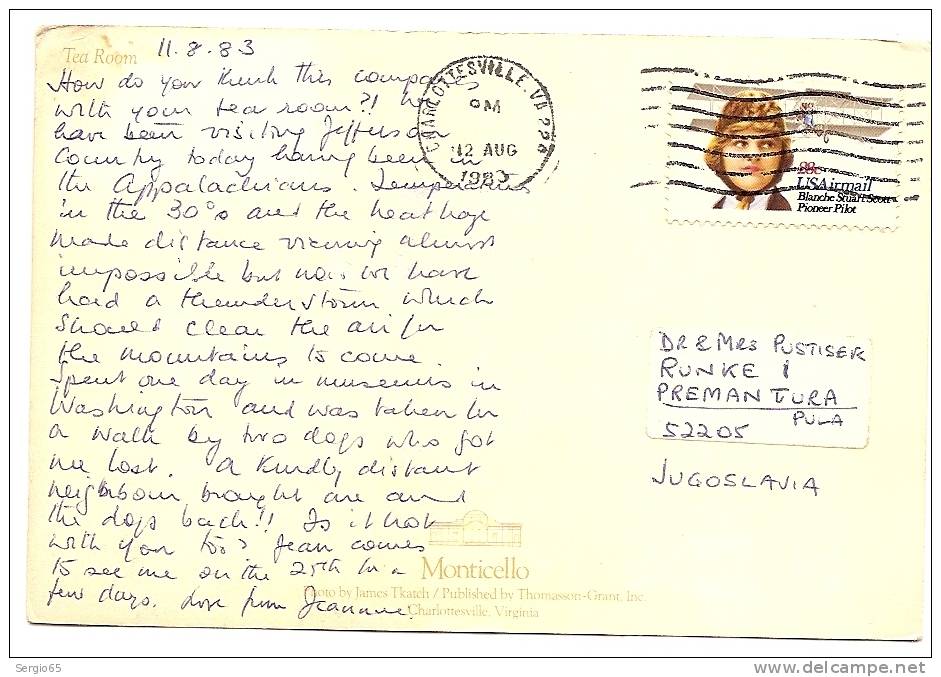 Tea Room
11.8.83
How do you think this compares
with your tea room?! We
have been visiting Jefferson
Country today having been in
the Appalachians. Temperatures
in the 30°s and the heat haze
made distance viewing almost
impossible but now we have
had a thunderstorm which
should clear the air for
the mountains to come.
Spent one day in museums in
Washington and was taken for
a walk by two dogs who got
me lost. A kindly distant
neighbour brought me and
the dogs back!! Is it hot
with you too? Jean comes
to see me on the 25th for a
few days. Love from Jeanne!
CHARLOTTESVILLE, VA
PM
12 AUG
1983
28c
USAirmail
Blanche Stuart Scott
Pioneer Pilot
DR & MRS PUSTISEK
RUNKE 1
PREMANTURA
PULA
52205
JUGOSLAVIA
Monticello
Photo by James Tkatch / Published by Thomasson-Grant, Inc.
Charlottesville, Virginia
Sergio65
www.delcampe.net